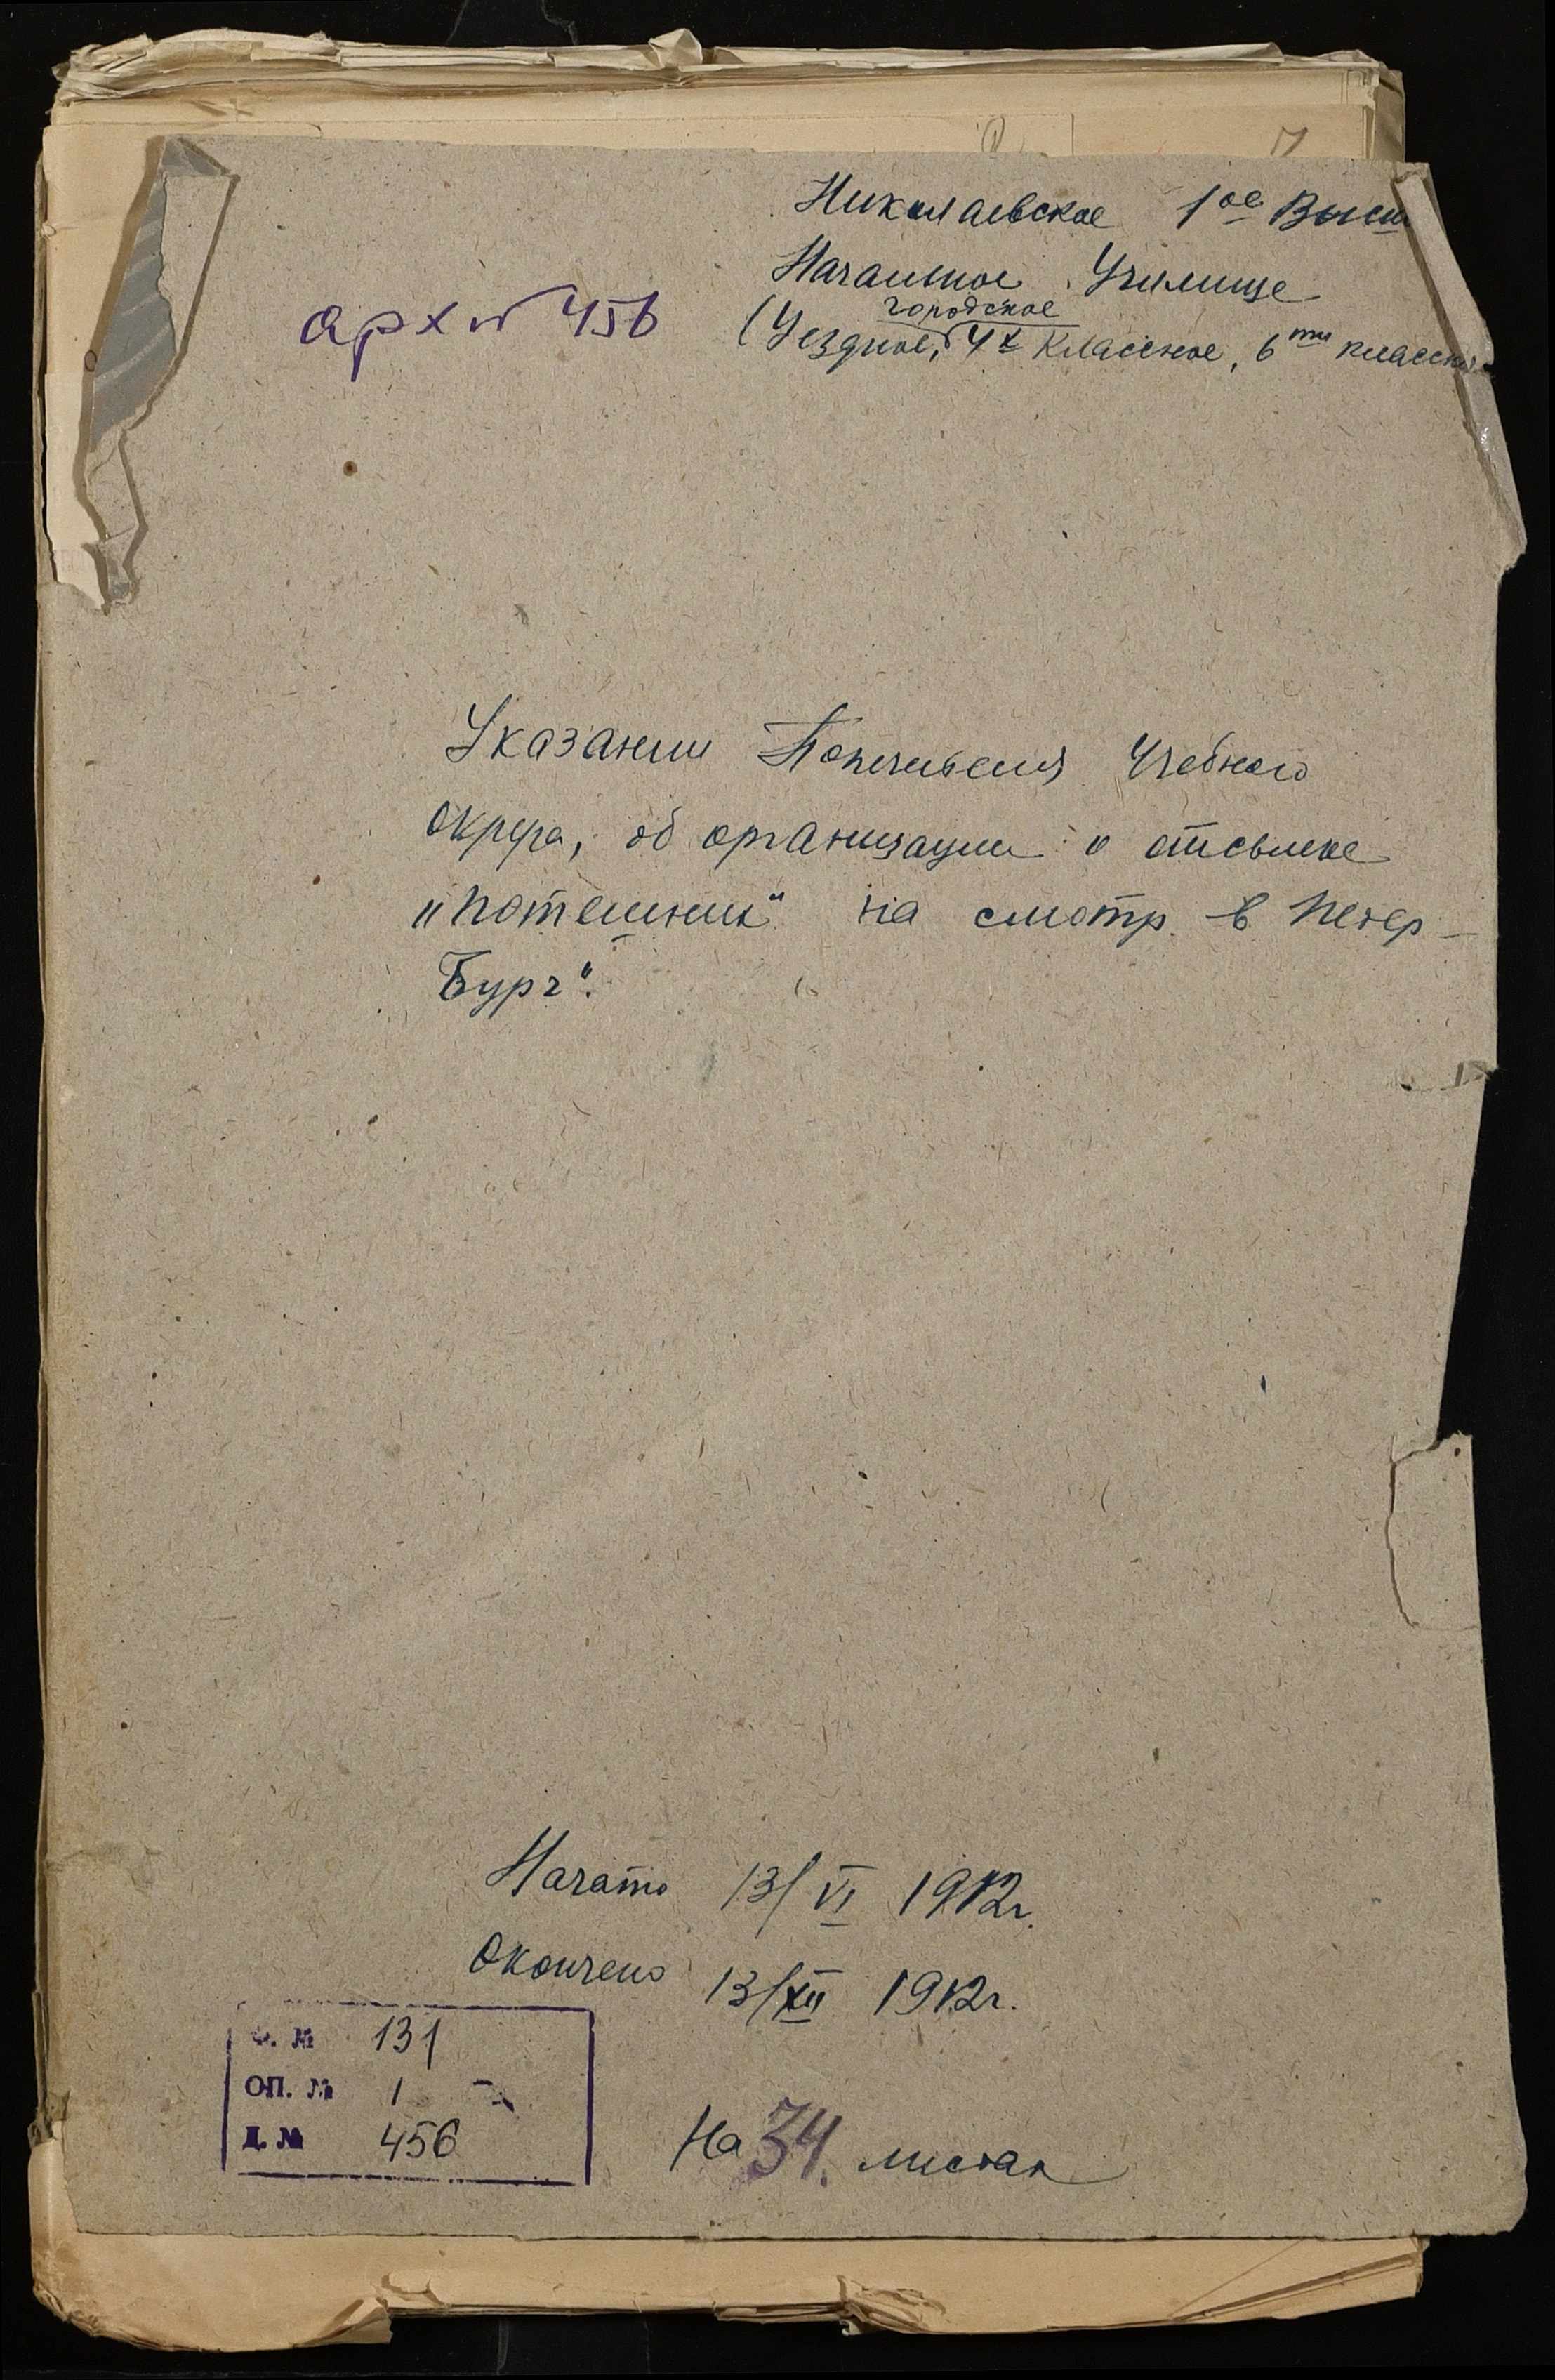 Николаевское 1ое Высш
Начальное Училище
городское
(Уездное, 4х Классное, 6ти классн
арх № 456
Указании Попечителя Учебного
округа, об организации и отсылке
"потешник" на смотр в Петер-
бург".
Начато 13/VI 1912г.
Окончено 13/XII 1912г.
Ф. № 131
ОП. № 1
Д. № 456
На 34. листах